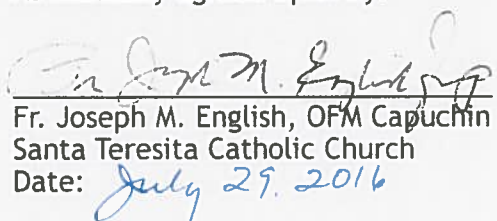 Fr. Joseph M. English
Fr. Joseph M. English, OFM Capuchin
Santa Teresita Catholic Church
Date: July 29. 2016